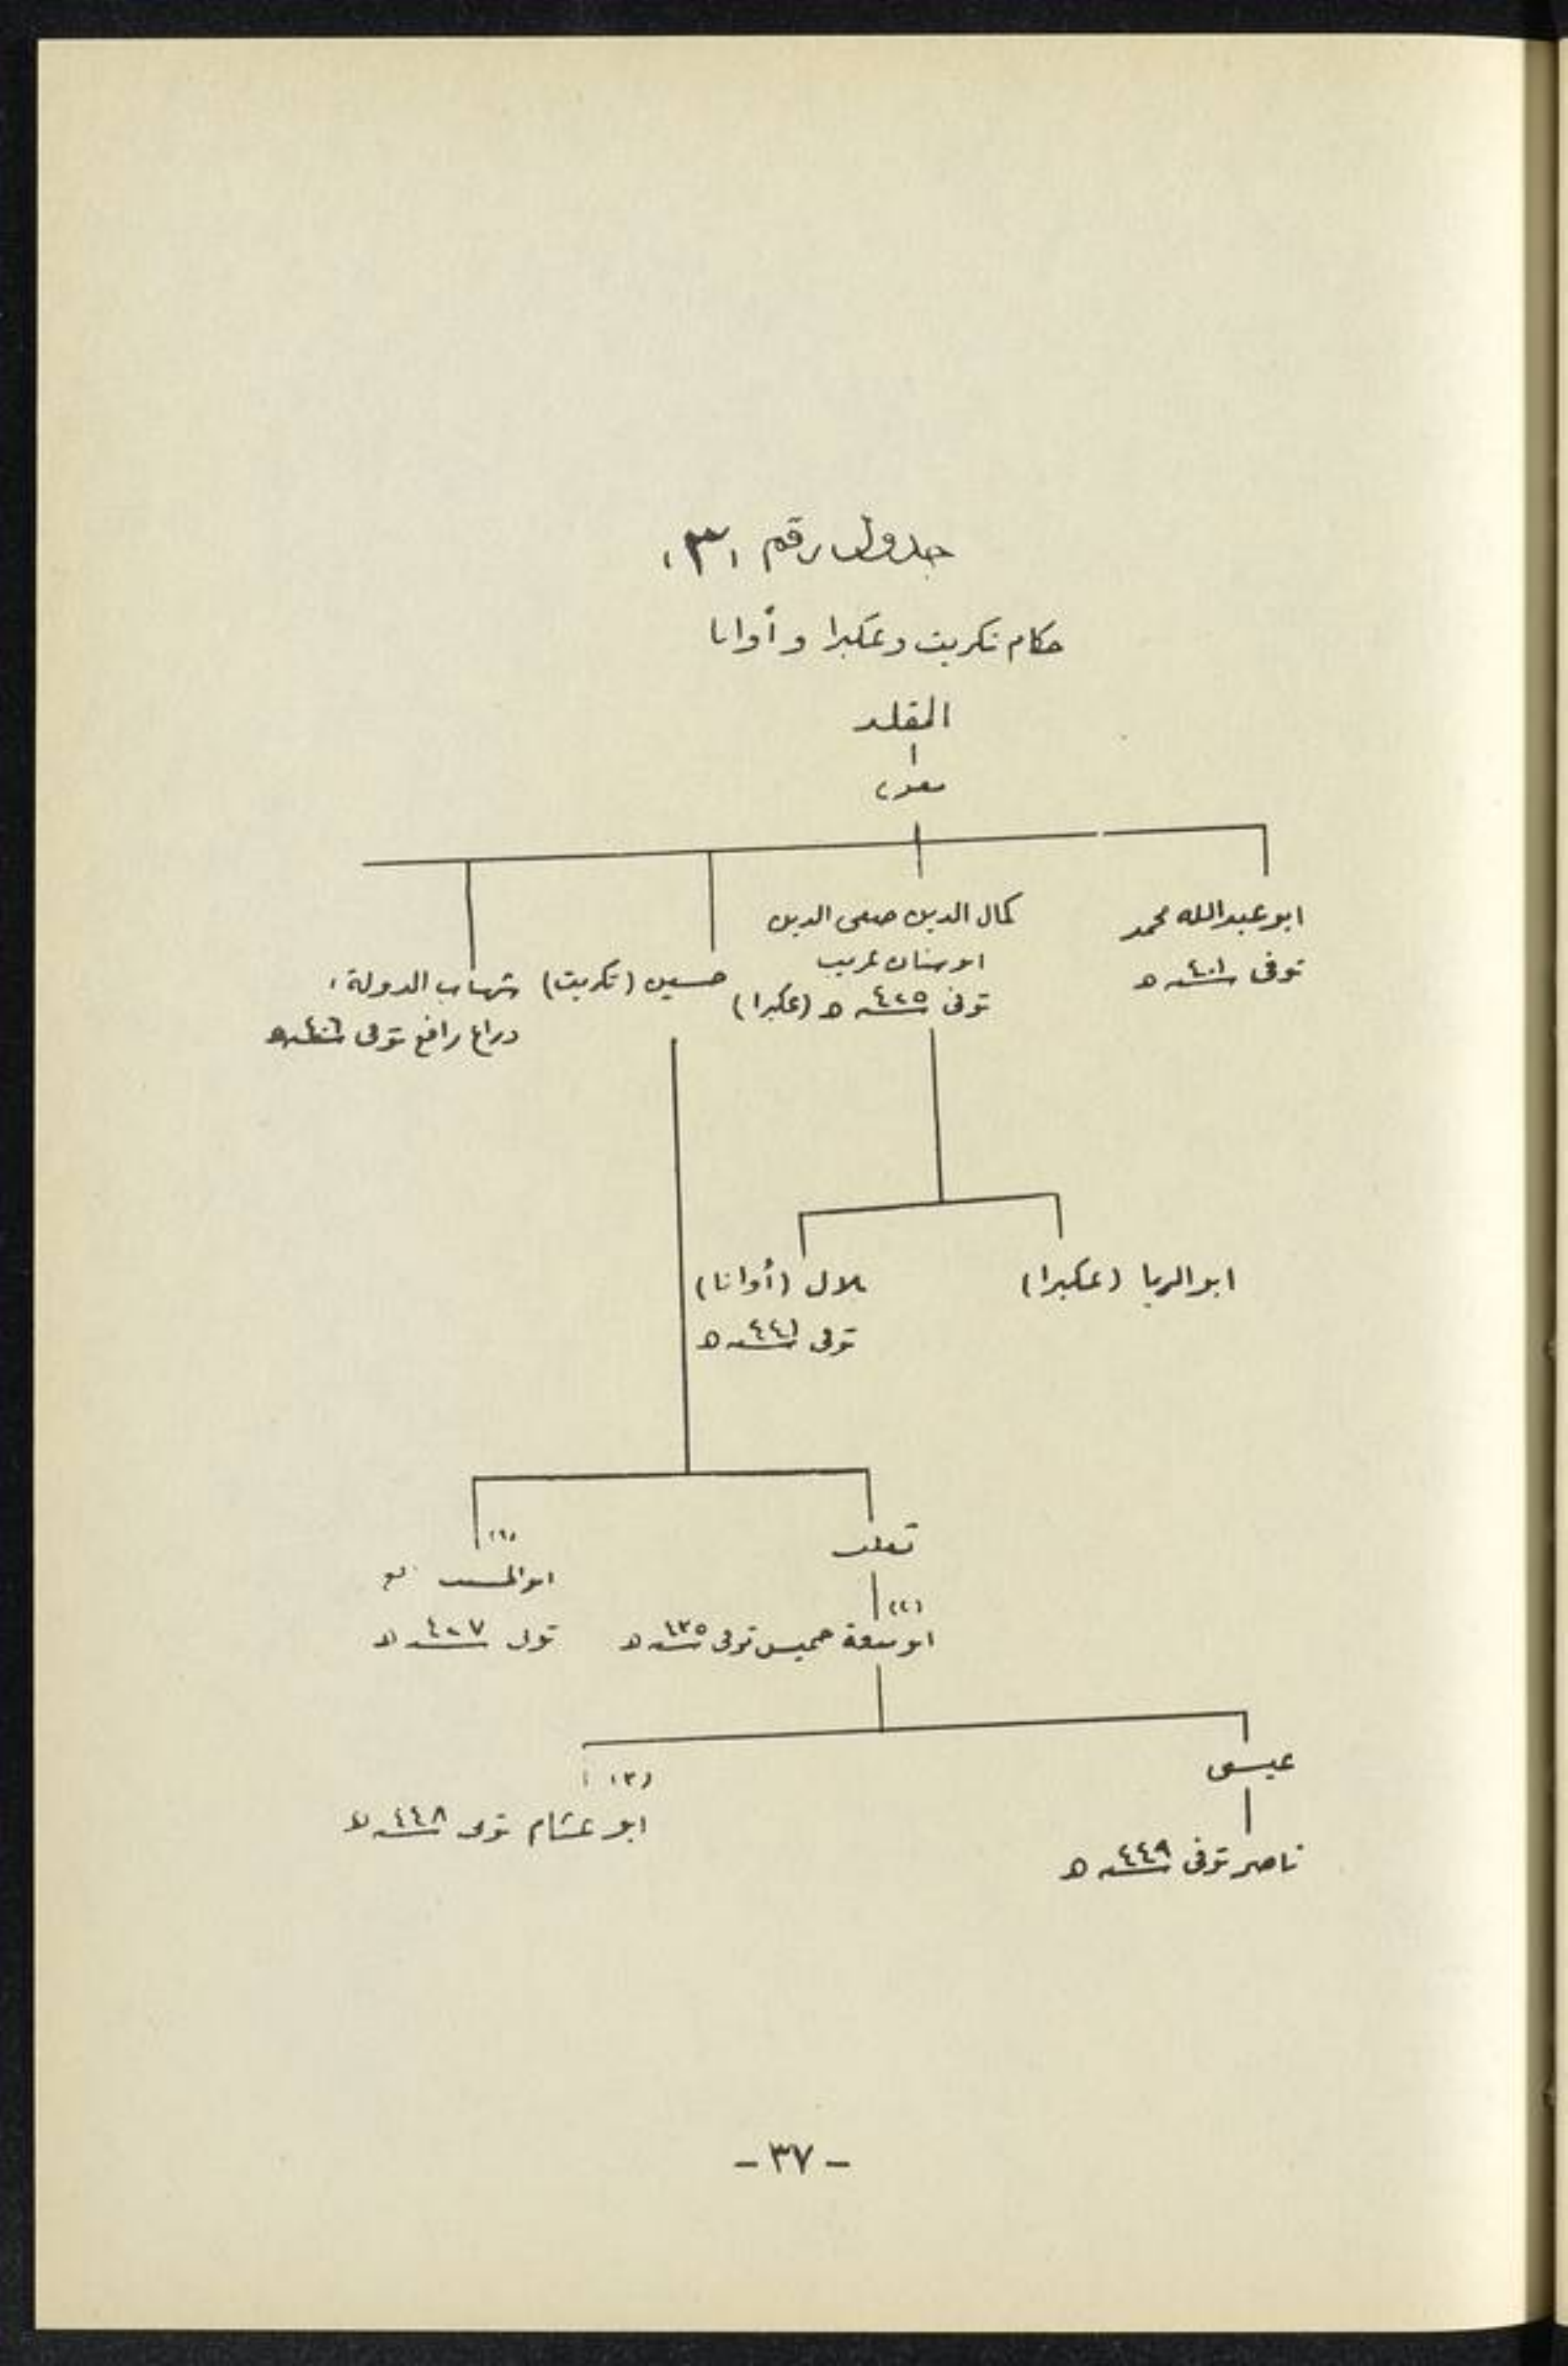 جدول رقم (٣)
حكام تكريت وعكبرا و أوانا
المقلد
معن
ابو عبدالله محمد
توفى سنة ٤٠١ ه
كمال الدين صفى الدين
ابو سنان غريب
توفى سنة ٤٢٥ ه (عكبرا)
حسين (تكريت)
شهاب الدولة،
دراع رافع توفى سنة ٤٠٦ ه
ابو الريا (عكبرا)
بلال (أوانا)
توفى سنة ٤٤١ ه
ثعلب
(٢)
ابو منعة خميس توفى سنة ٤٣٥ ه
(١)
ابو المسيب
سنة ٤٢٧ ه
عيسى
ناصر توفى سنة ٤٤٩ ه
(٣)
ابو غشام توفى سنة ٤٤٨ ه
- ٣٧ -